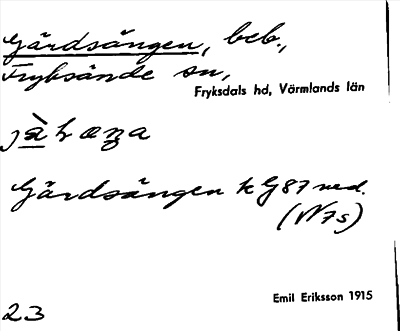 Gärdsängen, beb.,
Fryksände sn,
Fryksdals hd, Värmlands län
Gärdsängen k G87 ned.
(N7s)
Emil Eriksson 1915
23